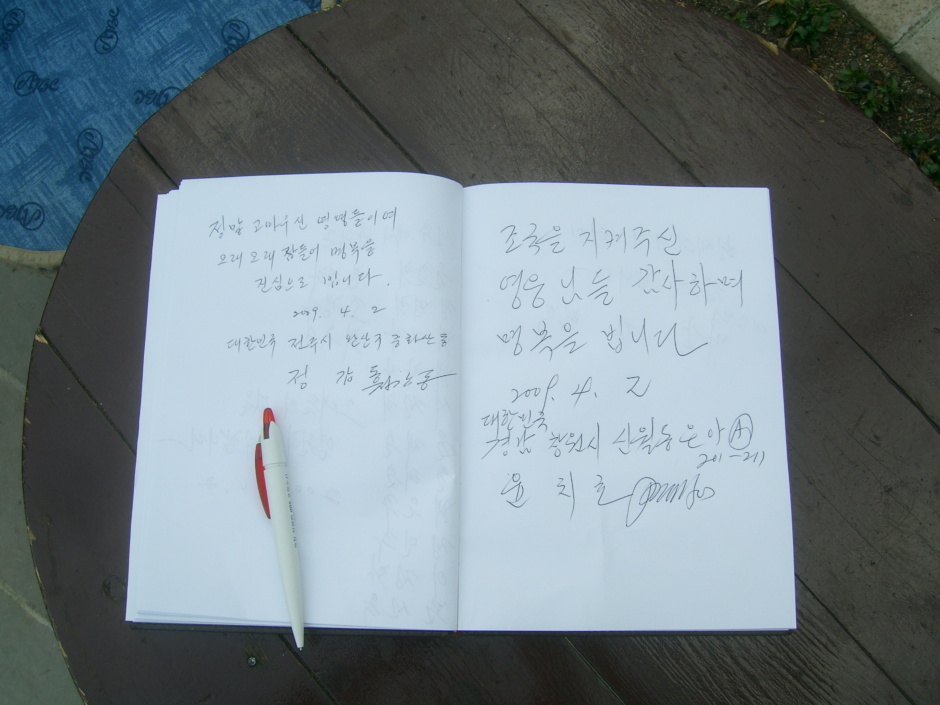 정말 고마우신 영령들이여
오래오래 잠들어 명복을
진심으로 빕니다.
2009. 4. 2
대한민국 전주시 완산구 중화산동
정
조국을 지켜주신
영웅님들 감사하며
명복을 빕니다
2009. 4. 2
대한민국
경남 창원시 신월동 은아 A
201-211
윤 치